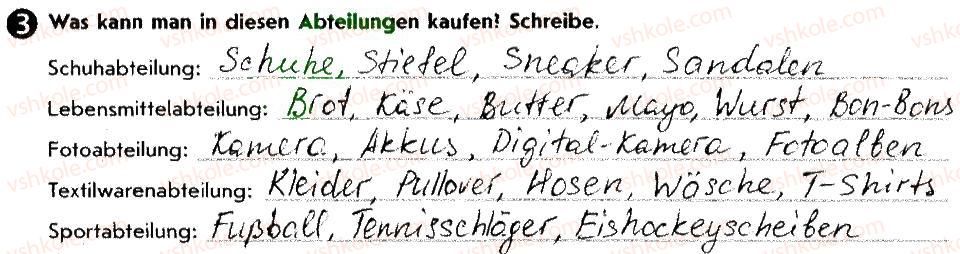 3 Was kann man in diesen Abteilungen kaufen? Schreibe.
Schuhabteilung: Schuhe, Stiefel, Sneaker, Sandalen
Lebensmittelabteilung: Brot, Käse, Butter, Mayo, Wurst, Bon-Bons
Fotoabteilung: Kamera, Akkus, Digital-Kamera, Fotoalben
Textilwarenabteilung: Kleider, Pullover, Hosen, Wäsche, T-Shirts
Sportabteilung: Fußball, Tennisschläger, Eishockeyscheiben